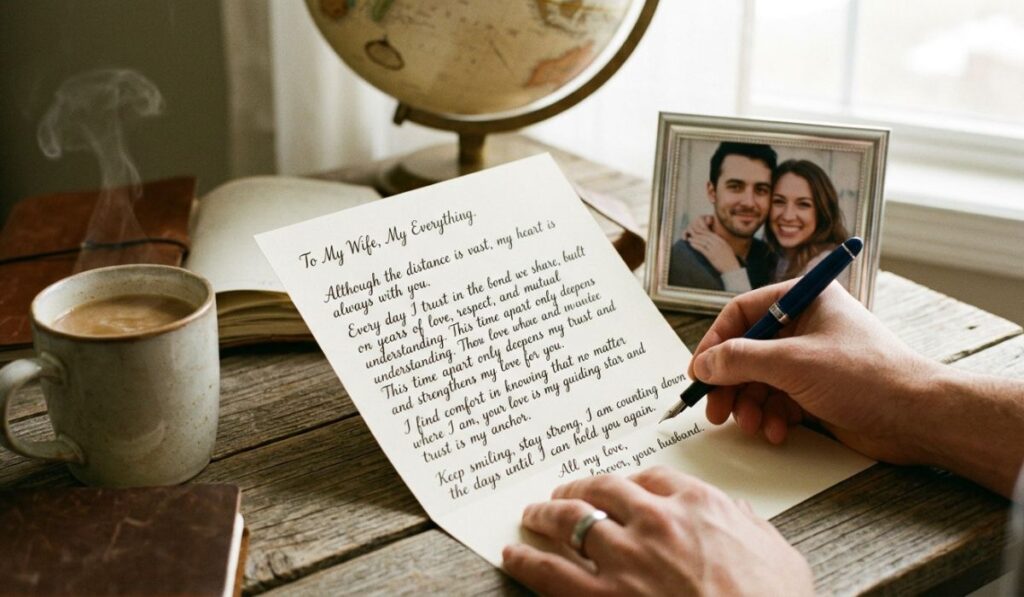 To My Wife, My Everything.
Although the distance is vast, my heart is
always with you.
Every day I trust in the bond we share, built
on years of love, respect, and mutual
understanding. This time apart only deepens
understanding. Thou love whoxe and mxuixe
This time apart only deepens my trust and
and strengthens my love for you.
I find comfort in knowing that no matter
where I am, your love is my guiding star and
trust is my anchor.
Keep smiling, stay strong, I am counting down
the days until I can hold you again.
All my love,
forever, your husband.